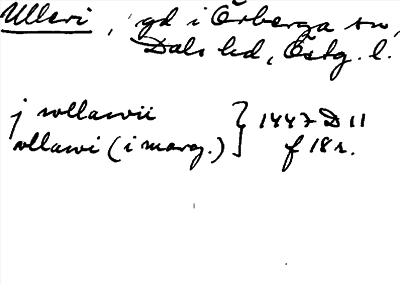 Ullevi, gd i Örberga sn,
Dals hd, Östg. l.
j wllawii } 1447 D 11
wllawi (i marg.) } f 18 r.